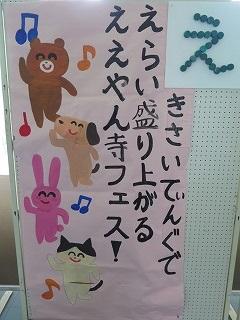 え
きさいてぃんぐで
えらい盛り上がる
ええやん寺フェス!